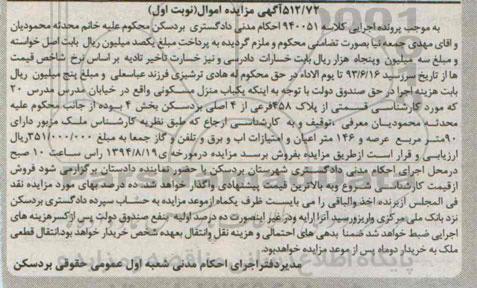 ۵۱۲/۷۲آگهی مزایده اموال(نوبت اول)
به موجب پرونده اجرایی کلاسه ۹۴۰۰۵۱ احکام مدنی دادگستری بردسکن محکوم علیه خانم محدثه محمودیان
و اقای مهدی جمعه نیا بصورت تضامنی محکوم و ملزم گردیده به پرداخت مبلغ یکصد میلیون ریال بابت اصل خواسته
و مبلغ سه میلیون وپنجاه هزار ریال بابت خسارات دادرسی و نیز خسارت تأخیر تادیه بر اساس نرخ شاخص قیمت
ها از تاریخ سررسید ۹۳/۶/۱۶ تا یوم الاداء در حق محکوم له هادی ترشیزی فرزند عباسعلی و مبلغ پنج میلیون ریال
بابت هزینه اجرا در حق صندوق دولت با توجه به اینکه یکباب منزل مسکونی واقع در خیابان مدرس مدرس ۲۰
که مورد کارشناسی قسمتی از پلاک ۴۵۸فرعی از ۴ اصلی بردسکن بخش ۴ بوده از جانب محکوم علیه
محدثه محمودیان معرفی ،توقیف و به کارشناسی ارجاع که طبق نظریه کارشناس ملک مزبور دارای
۹۰متر مربع عرصه و ۱۴۶ متر اعیان و امتیازات اب و برق و تلفن و گاز جمعا به مبلغ ۳۵۱/۰۰۰/۰۰۰ریال
ارزیابی و قرار است ازطریق مزایده بفروش برسد مزایده درمورخه ای ۱۳۹۴/۸/۱۹ راس ساعت ۱۰ صبح
درمحل اجرای احکام مدنی دادگستری شهرستان بردسکن با حضور نماینده دادستان برگزارمی شود فروش
ازقیمت کارشناسی شروع وبه بالاترین قیمت پیشنهادی واگذار خواهد شد، ده درصد بهای مورد مزایده نقد
فی المجلس ازبرنده اخذ والباقی را می بایست ظرف یکماه ازموعد مزایده به حساب سپرده دادگستری بردسکن
نزد بانک ملی مرکزی واریزورسید آنرا ارایه ودر غیر اینصورت ده درصد اولیه بنفع صندوق دولت پس ازکسرهزینه های
اجرایی ضبط خواهد شد ضمنا بدهی های احتمالی و هزینه نقل وانتقال بعهده شخص خریدار خواهد بودانتقال قطعی
ملک به خریدار دوماه پس از موعد مزایده خواهدبود.
مدیردفتراجرای احکام مدنی شعبه اول عمومی حقوقی بردسکن